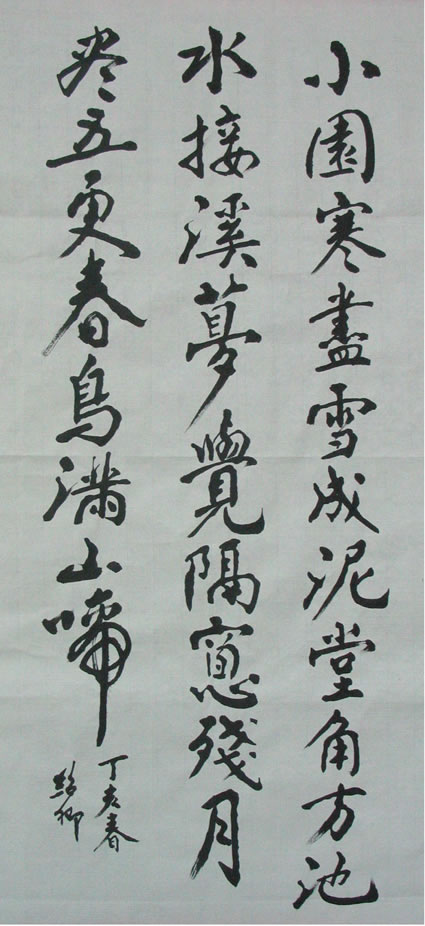 小園寒盡雪成泥堂角方池
水接溪夢覺隔窻殘月
尽五更春鳥滿山啼
丁亥春
卿